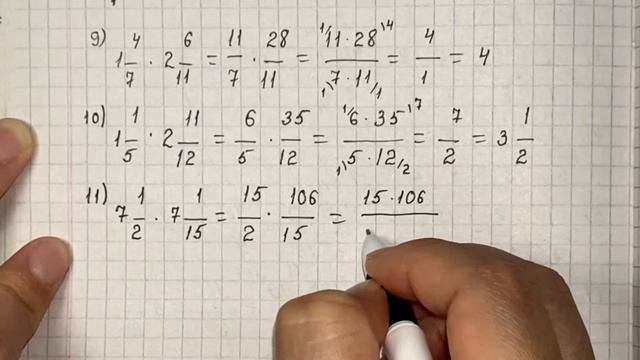 9) 1 4/7 · 2 6/11 = 11/7 · 28/11 = 11·28/7·11 = 4/1 = 4
10) 1 1/5 · 2 11/12 = 6/5 · 35/12 = 6·35/5·12 = 7/2 = 3 1/2
11) 7 1/2 · 7 1/15 = 15/2 · 106/15 = 15·106